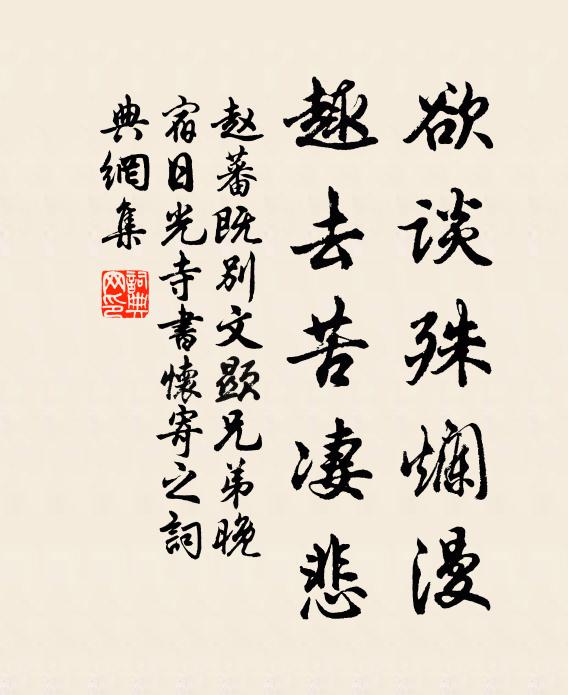 欲谈殊爛漫
趣去苦凄悲
赵蕃既别文顕兄弟晚
宿日光寺書懷寄之詞
典網集
詞典网印